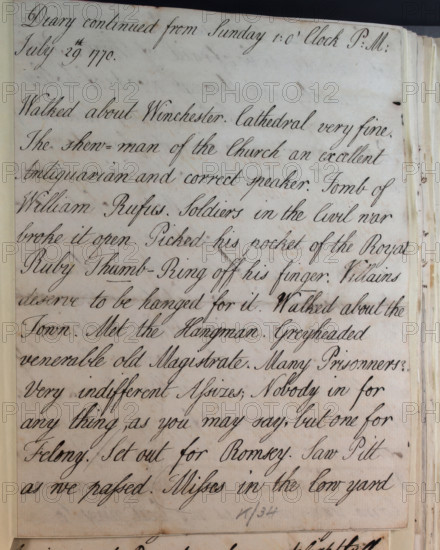 Diary continued from Sunday 1. o' Clock P: M:
July 29th 1770.
Walked about Winchester. Cathedral very fine.
The shew=man of the Church an excellent
Antiquarian and correct speaker. Tomb of
William Rufus. Soldiers in the Civil war
broke it open. Picked his pocket of the Royal
Ruby Thumb-Ring off his finger. Villains
deserve to be hanged for it. Walked about the
Town. Met the Hangman. Greyheaded
venerable old Magistrate. Many Prisonners.
Very indifferent Assizes, Nobody in for
any thing, as you may say, but one for
Felony. Set out for Romsey. Saw Pitt
as we passed. Misses in the Cow yard
K/34
PHOTO12